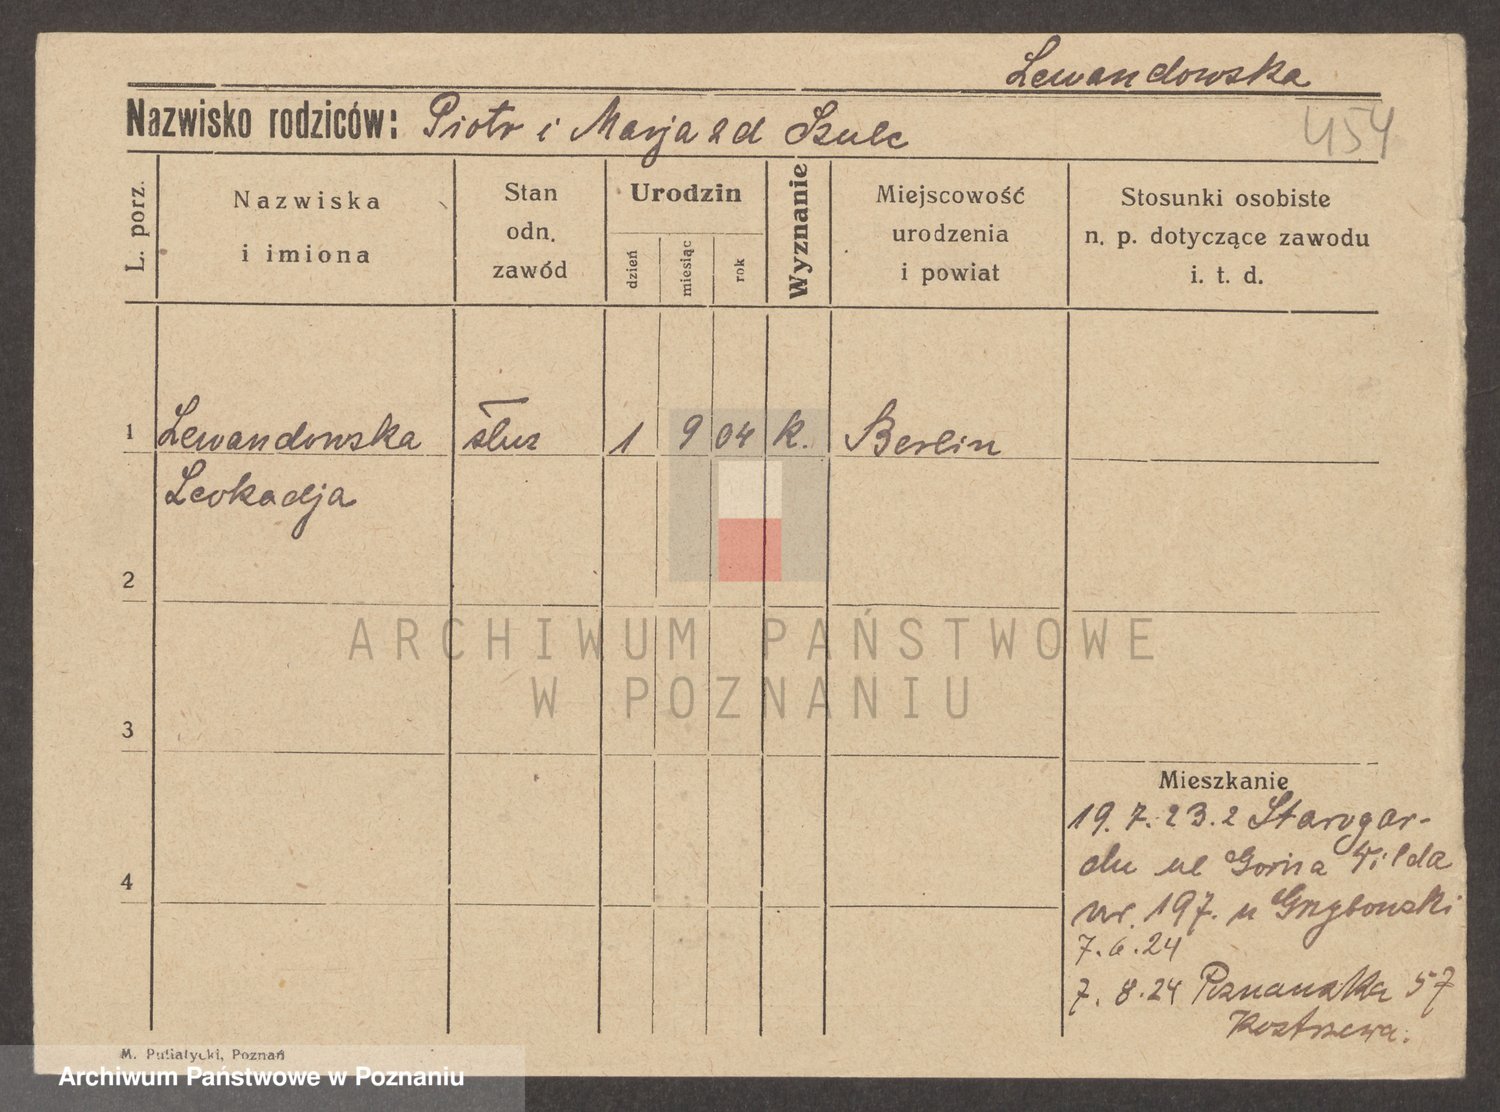 Lewandowska
Nazwisko rodziców: Piotr i Marja zd Szulc
454
L. porz.
Nazwiska
i imiona
Stan
odn.
zawód
Urodzin
dzień
miesiąc
rok
Wyznanie
Miejscowość
urodzenia
i powiat
Stosunki osobiste
n. p. dotyczące zawodu
i. t. d.
1 Lewandowska służ 1 9 04 k. Berlin
Leokadja
2
3
4
ARCHIWUM PAŃSTWOWE
W POZNANIU
Mieszkanie
19. 7. 23. z Starogar-
du ul Gorna Wilda
nr. 197. u Grzybowski
7. 6. 24
7. 8. 24 Poznanska 57
Kostrzewa.
M. Putiatycki, Poznań
Archiwum Państwowe w Poznaniu